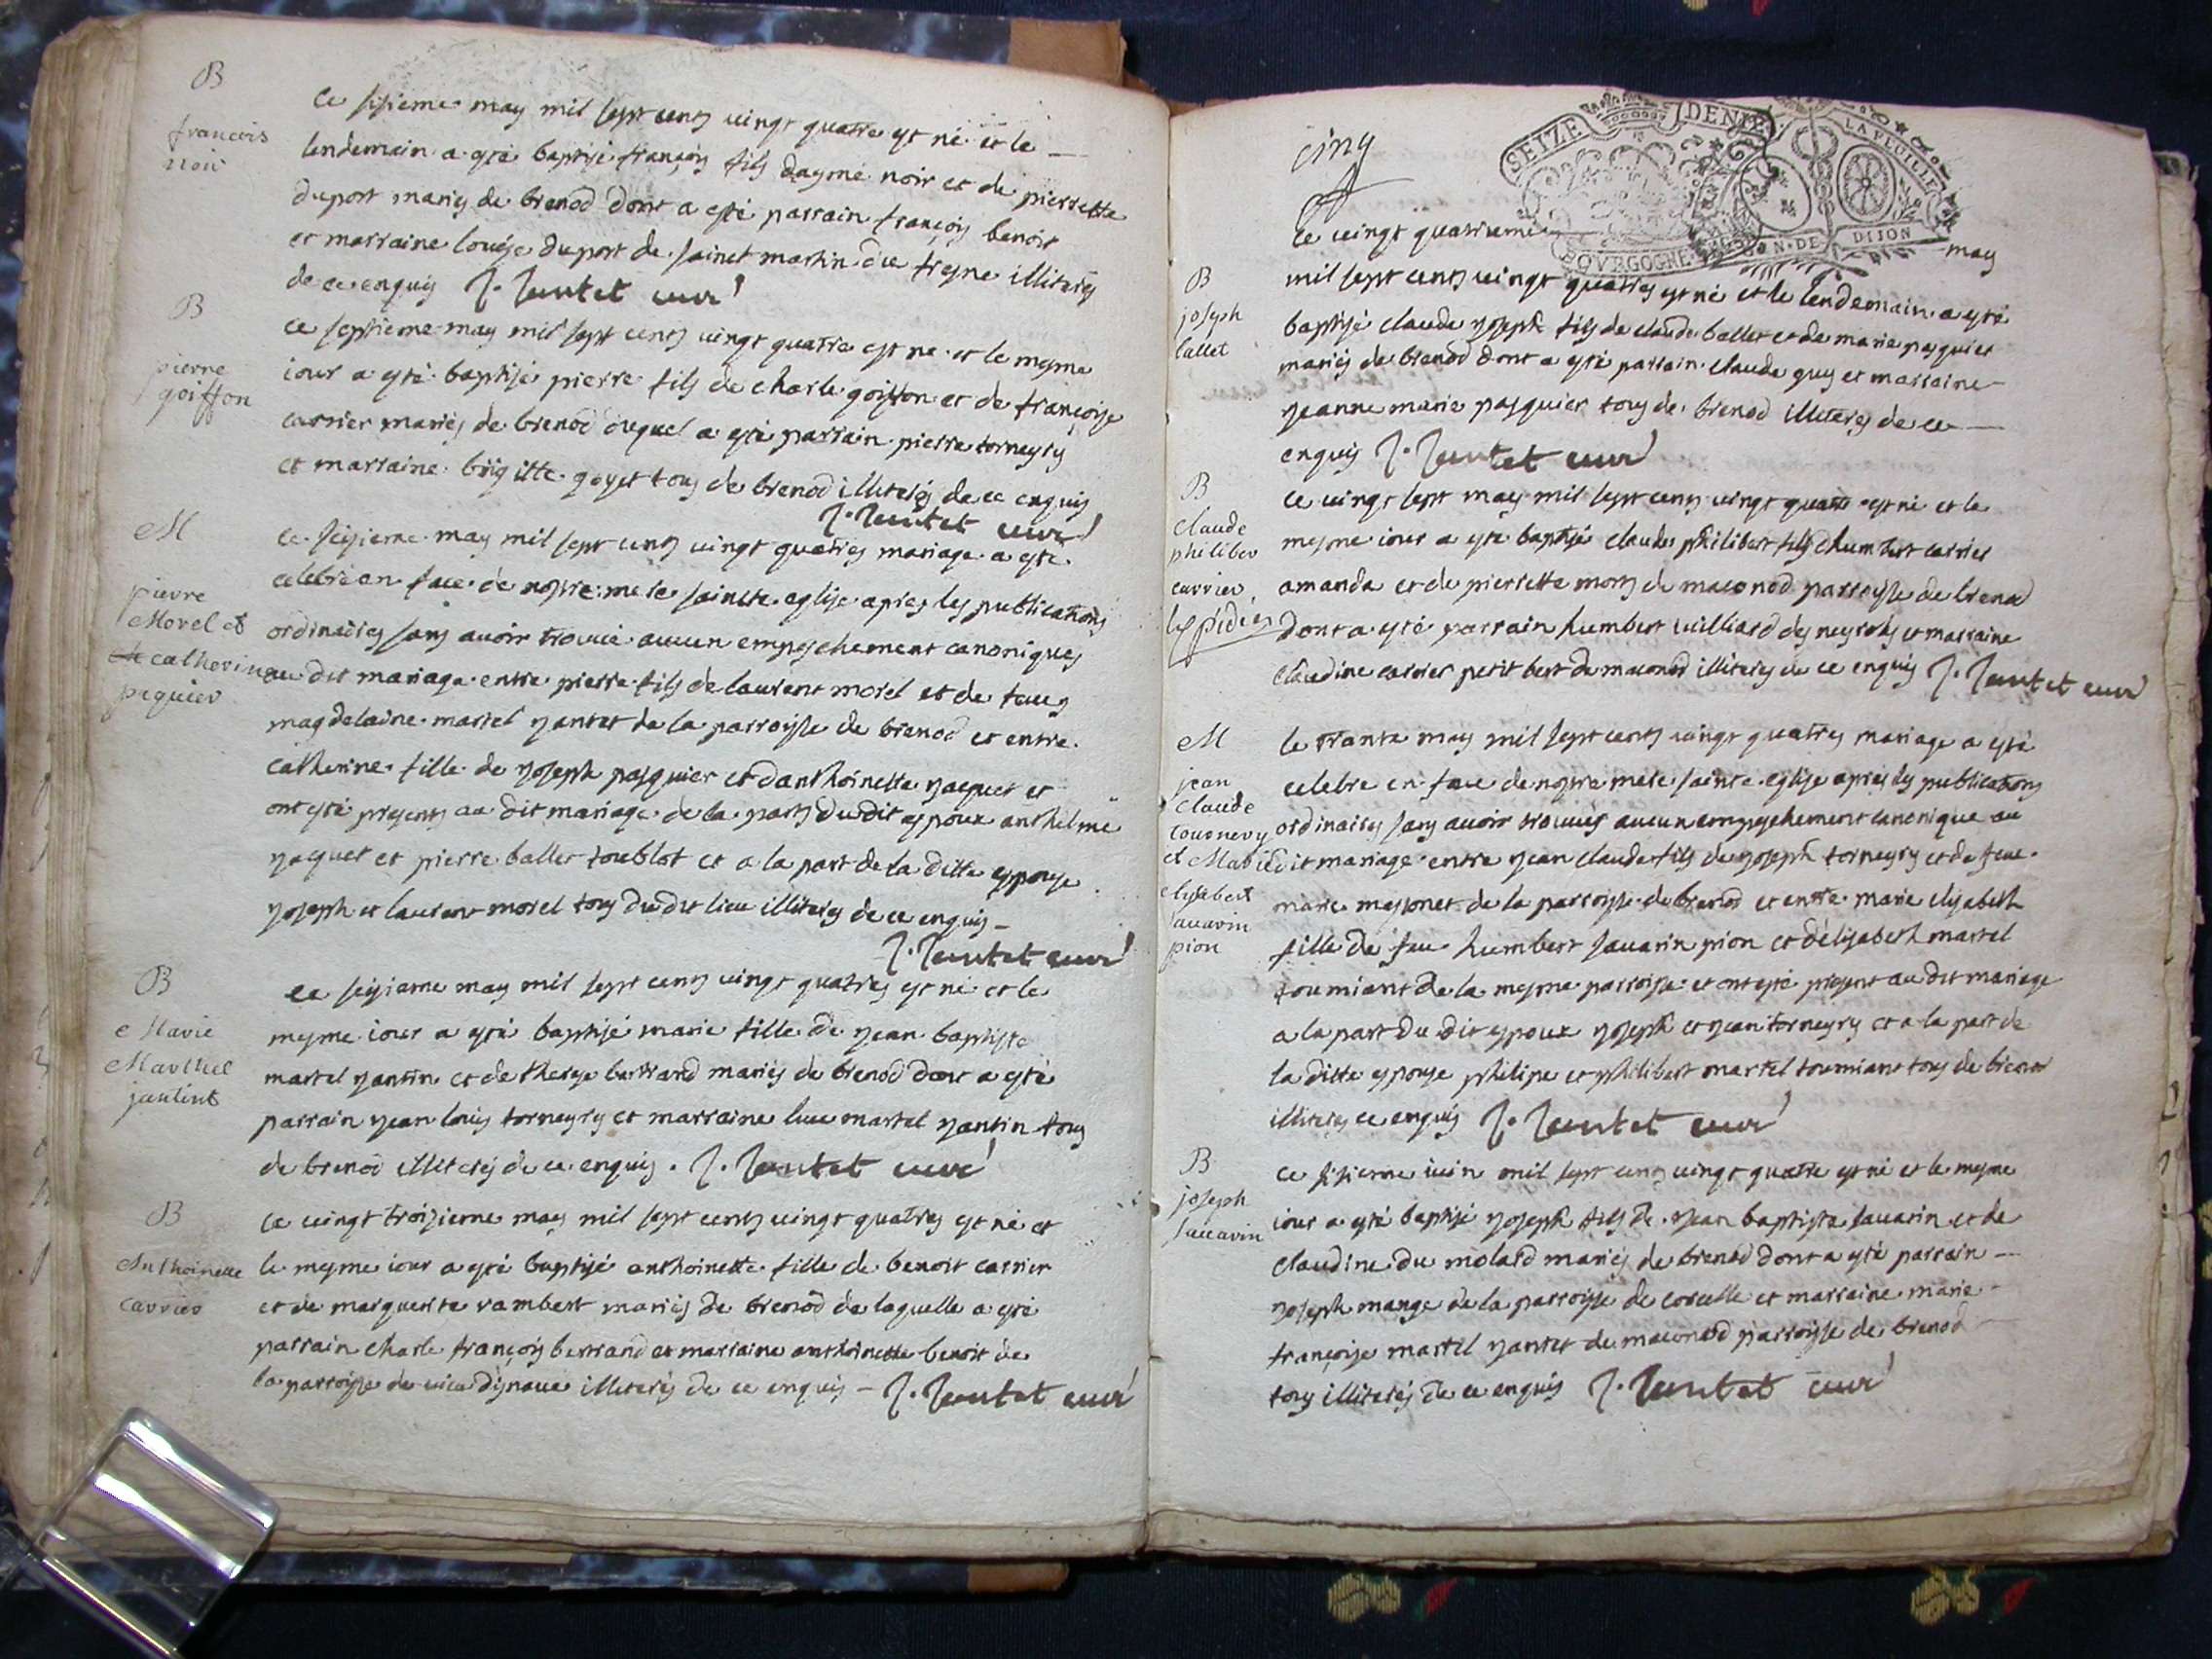 B
francois
noir
ce sisieme may mil sept cents vingt quatre est né et le
lendemain a esté baptisé françois fils daymé noir et de pierrette
duport mariés de brenod dont a esté parrain françois benoit
et marraine louise duport de sainct martin du fresne illiterés
de ce enquis J. Jeutet curé
B
pierre
goiffon
ce septieme may mil sept cents vingt quatre est né et le mesme
iour a esté baptisé pierre fils de charle goiffon et de françoise
carrier mariés de brenod duquel a esté parrain pierre torneyry
et marraine brigitte goyet tous de brenod illiterés de ce enquis
J. Jeutet curé
M
pierre
Morel et
catherine
pequier
ce seisieme may mil sept cents vingt quatres mariage a esté
celebré en face de nostre mere saincte eglise apres les publications
ordinaires sans auoir trouué aucun empeschement canoniques
au dit mariage entre pierre fils de laurent morel et de feue
magdelaine martel yantet de la parroisse de brenod et entre
catherine fille de yoseph pasquier et danthoinette yacquet et
ont esté presents au dit mariage de la parts du dit espoux anthelme
yaquet et pierre ballet toublot et a la part de la ditte espouse
yoseph et laurent morel tous du dit lieu illiterés de ce enquis
J. Jeutet curé
B
Marie
Marthel
jantint
ce seisieme may mil sept cents vingt quatres est né et le
mesme iour a esté baptisé marie fille de yean baptiste
martel yantin et de therese bertrand mariés de brenod dont a esté
parrain yean louis torneyry et marraine luce martel yantin tous
de brenod illiterés de ce enquis. J. Jeutet curé
B
Anthoinette
Carrier
ce vingt troisieme may mil sept cents vingt quatres est né et
le mesme iour a esté baptisé anthoinette fille de benoit carrier
et de marguerite rambert mariés de brenod de laquelle a esté
parrain charle françois bertrand et marraine anthoinette benoit de
la parroisse de vieu disnaue illiterés de ce enquis J. Jeutet curé
cinq
SEIZE DENIE LA FEUILLE
BOVRGOGNE DE DIJON
ce vingt quatrieme may
B
joseph
ballet
mil sept cents vingt quatres est né et le lendemain a esté
baptisé claude yoseph fils de claude ballet et de marie pasquier
mariés de brenod dont a esté parrain claude guy et marraine
yeanne marie pasquier tous de brenod illiterés de ce
enquis J. Jeutet curé
B
Claude
philiber
carrier
ce vingt sept may mil sept cents vingt quatre est né et le
mesme iour a esté baptisé claudes philibert fils dhumbert carrier
amanda et de pierrette morts de maconod parroisse de brenod
dont a esté parrain humbert uilliard des neyrols et marraine
claudine carrier petit bert de maconod illiterés de ce enquis J. Jeutet curé
M
jean
Claude
tournery
et Marie
elysabert
sauarin
pion
le trante may mil sept cents vingt quatres mariage a esté
celebré en face de nostre mere sainte eglise apres les publications
ordinaires sans auoir trouués aucun empeschement canonique au
dit mariage entre yean claude fils de yoseph torneyry et de feue
marie messonet de la parroisse de brenod et entre marie elysabeth
fille de feu humbert sauarin pion et delisabeth martel
toumiant de la mesme parroisse et ont esté present au dit mariage
a la part du dit espoux yoseph et yean torneyry et a la part de
la ditte espouse philipe et philibert martel toumiant tous de brenod
illiterés ce enquis J. Jeutet curé
B
joseph
sauarin
ce sisieme iuin mil sept cents vingt quatre est né et le mesme
iour a esté baptisé yoseph fils de yean baptiste sauarin et de
claudine du molard mariés de brenod dont a esté parrain
yoseph mange de la parroisse de corcelle et marraine marie
françoise martel yantet de maconod parroisse de brenod
tous illiterés de ce enquis J. Jeutet curé